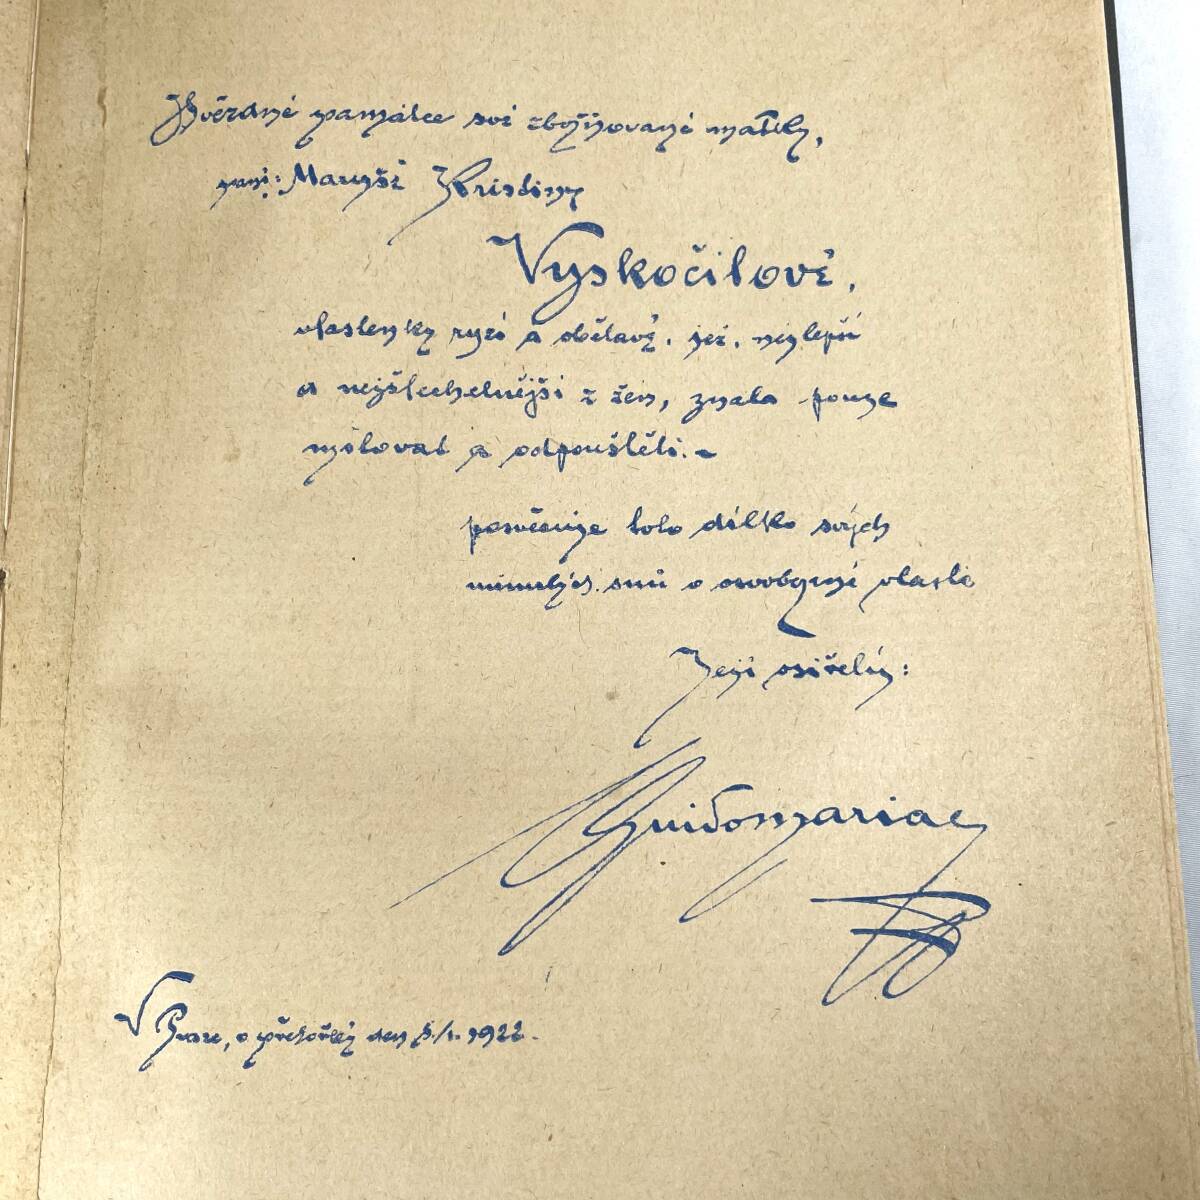 památce své zbožňované matky,
paní: Maryši Kristiny
Vyskočilové,
vlastenky ryzí a obětavé, jež, nejlepší
a nejšlechetnější z žen, znala pouze
milovat a odpouštěti.-
posvěcuje toto dílko svých
minulých snů o osvobození vlasti
Její osiřelý:
Guidomaria
V Praze, o předvečer den 5/1. 1922.